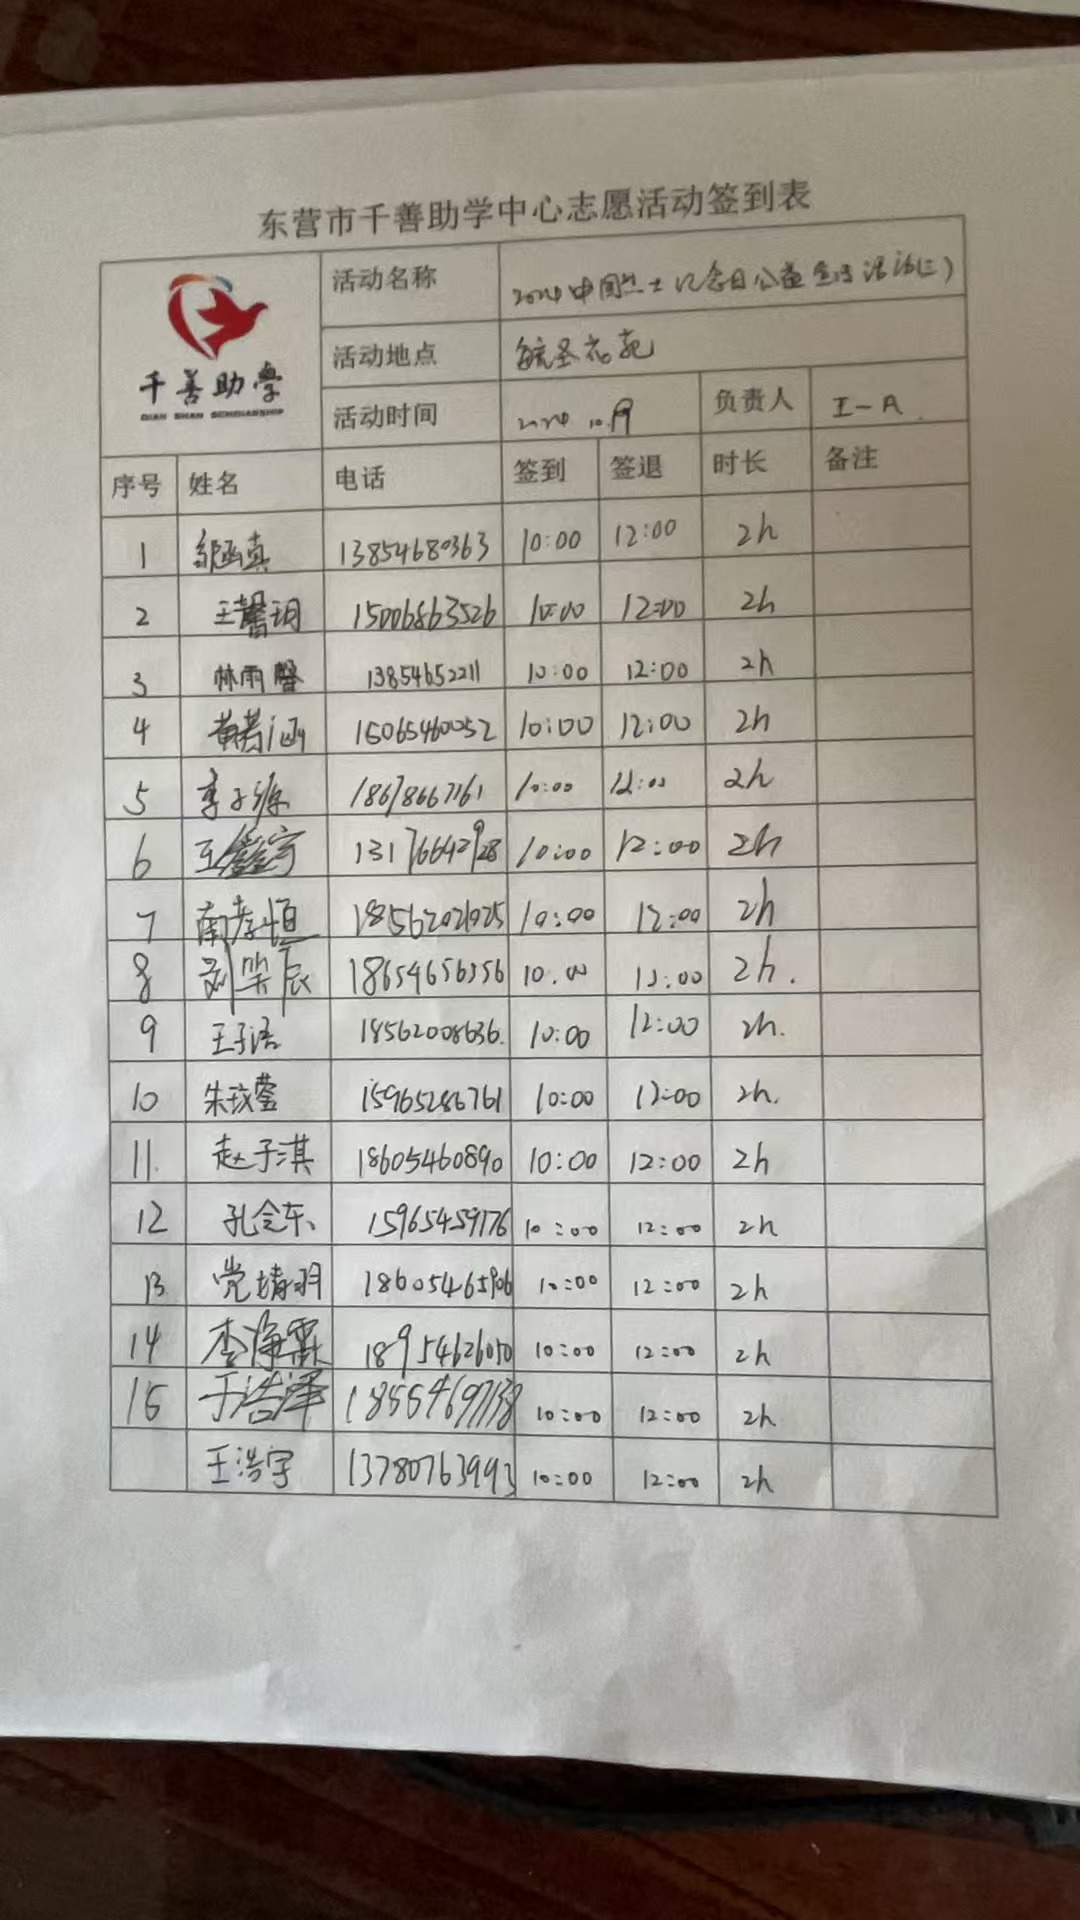 东营市千善助学中心志愿活动签到表
千善助学
QIAN SHAN SCHOLARSHIP
活动名称 2024中国烈士纪念日公益宣传活动(三)
活动地点 花苑
活动时间 2024 10.
负责人
序号 姓名 电话 签到 签退 时长 备注
1 函真 13854680363 10:00 12:00 2h
2 王馨玥 15006863526 10:00 12:00 2h
3 林雨馨 13854652211 10:00 12:00 2h
4 黄若涵 15065460052 10:00 12:00 2h
5 李子源 18678667161 10:00 12:00 2h
6 王鑫宇 13176642928 10:00 12:00 2h
7 南孝恒 10:00 12:00 2h
8 刘笑辰 18654656356 10.00 12:00 2h.
9 王子语 18562008636. 10:00 12:00 2h.
10 朱玹莹 15965286761 10:00 12:00 2h.
11. 赵子淇 18605460890 10:00 12:00 2h
12 孔令东 15965459176 10:00 12:00 2h
13 党靖羽 18605465906 10:00 12:00 2h
14 李海霖 18954626050 10:00 12:00 2h
15 于浩泽 18554697138 10:00 12:00 2h
王浩宇 13780763993 10:00 12:00 2h